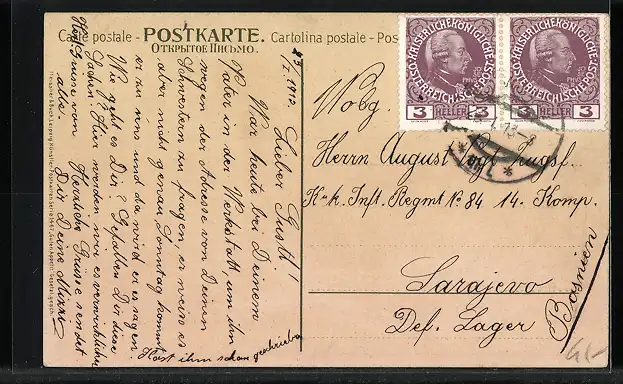 Carte postale - POSTKARTE. Cartolina postale - Pos
ОТКРЫТОЕ ПИСЬМО.
KAISERLICHE KÖNIGLICHE
ÖSTERREICHISCHE POST
3 HELLER 3
KAISERLICHE KÖNIGLICHE
ÖSTERREICHISCHE POST
3 HELLER 3
Lieber Gustl!
War heute bei Deinem
Vater in der Werkstatt um ihn
wegen der Adresse von Deinen
Schwestern zu fragen, er weiss es
aber nicht genau, Sonntag kommt
er zu uns und da wird er es sagen
Wie geht es Dir? Gefallen Dir diese
Sachen? Hier werden wir es
Herzliche Grüsse sendet
Dir Deine Mizzi
Grüsse von
alle.
Hast ihm schon geschrieben
Wobg.
Herrn August
K. k. Inft. Regmt № 84 14. Komp.
Sarajevo
Def. Lager
Bosnien